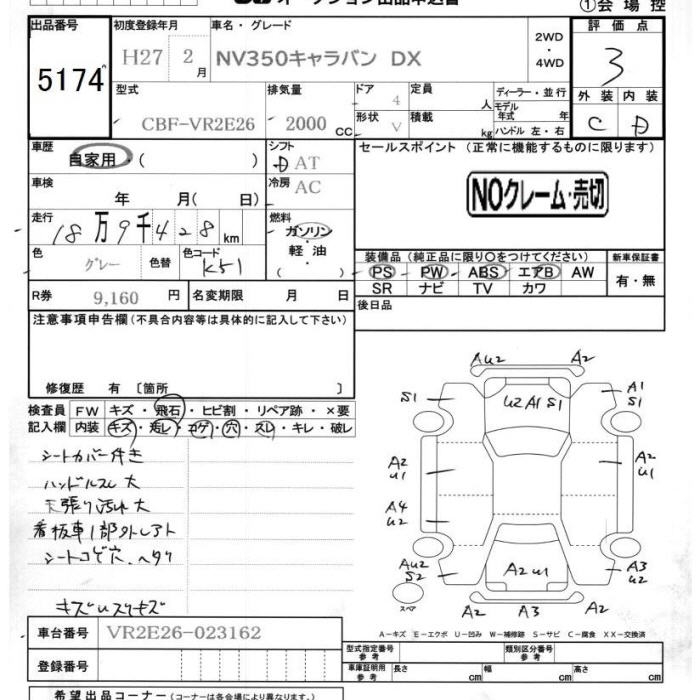 オークション出品申込書
①会場控
出品番号
5174
初度登録年月
H27 2月
車名・グレード
NV350キャラバン DX
2WD
・
4WD
評価点
3
外装 内装
C D
型式
CBF-VR2E26
排気量
2000 CC
ドア
4
定員
人
形状
V
積載
kg
ディーラー・並行
モデル年式 年
ハンドル 左・右
車歴
自家用・( )
シフト
AT
セールスポイント (正常に機能するものに限ります)
NOクレーム・売切
車検
年 月( 日)
冷房
AC
走行
18万9千428km
燃料
ガソリン
・
軽・油
( )
色
グレー
色替
色コード
K51
装備品 (純正品に限り○をつけてください)
PS PW ABS エアB AW
SR ナビ TV カワ
新車保証書
有・無
R券
9,160 円
名変期限 月 日
後日品
注意事項申告欄 (不具合内容等は具体的に記入して下さい)
修復歴 有 〔箇所 〕
検査員記入欄
FW キズ・飛石・ヒビ割・リペア跡・×要
内装 キズ・汚レ・コゲ・穴・スレ・キレ・破レ
シートカバー付き
ハンドルスレ大
天張り汚れ大
看板車1部外しアト
シートコゲ穴、ヘタリ
AU2 A2
S1
U2 A1 S1
A1
S1
A2
U1
A2
U1
A4
U2
AU2
S2
A2 U1
A3
U2
スペア
A2 A3 A2
A-キズ E-エクボ U-凹み W-補修跡 S-サビ C-腐食 XX-交換済
車台番号
VR2E26-023162
登録番号
型式指定番号
参考
類別区分番号
参考
車庫証明用
参考
長さ cm
幅 cm
高さ cm
希望出品コーナー (コーナーは各会場により異なります。)